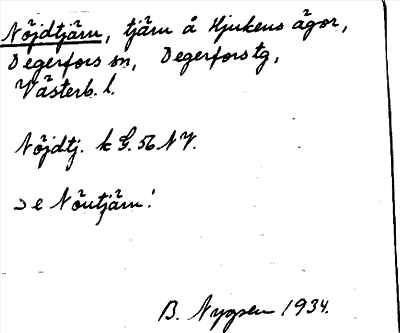 Nöjdtjärn, tjärn å Hjukens ägor,
Degerfors sn, Degerfors tg,
Västerb. l.
Nöjdtj. k G. 56 NV.
Se Nöutjärn!
B. Nygren 1934.